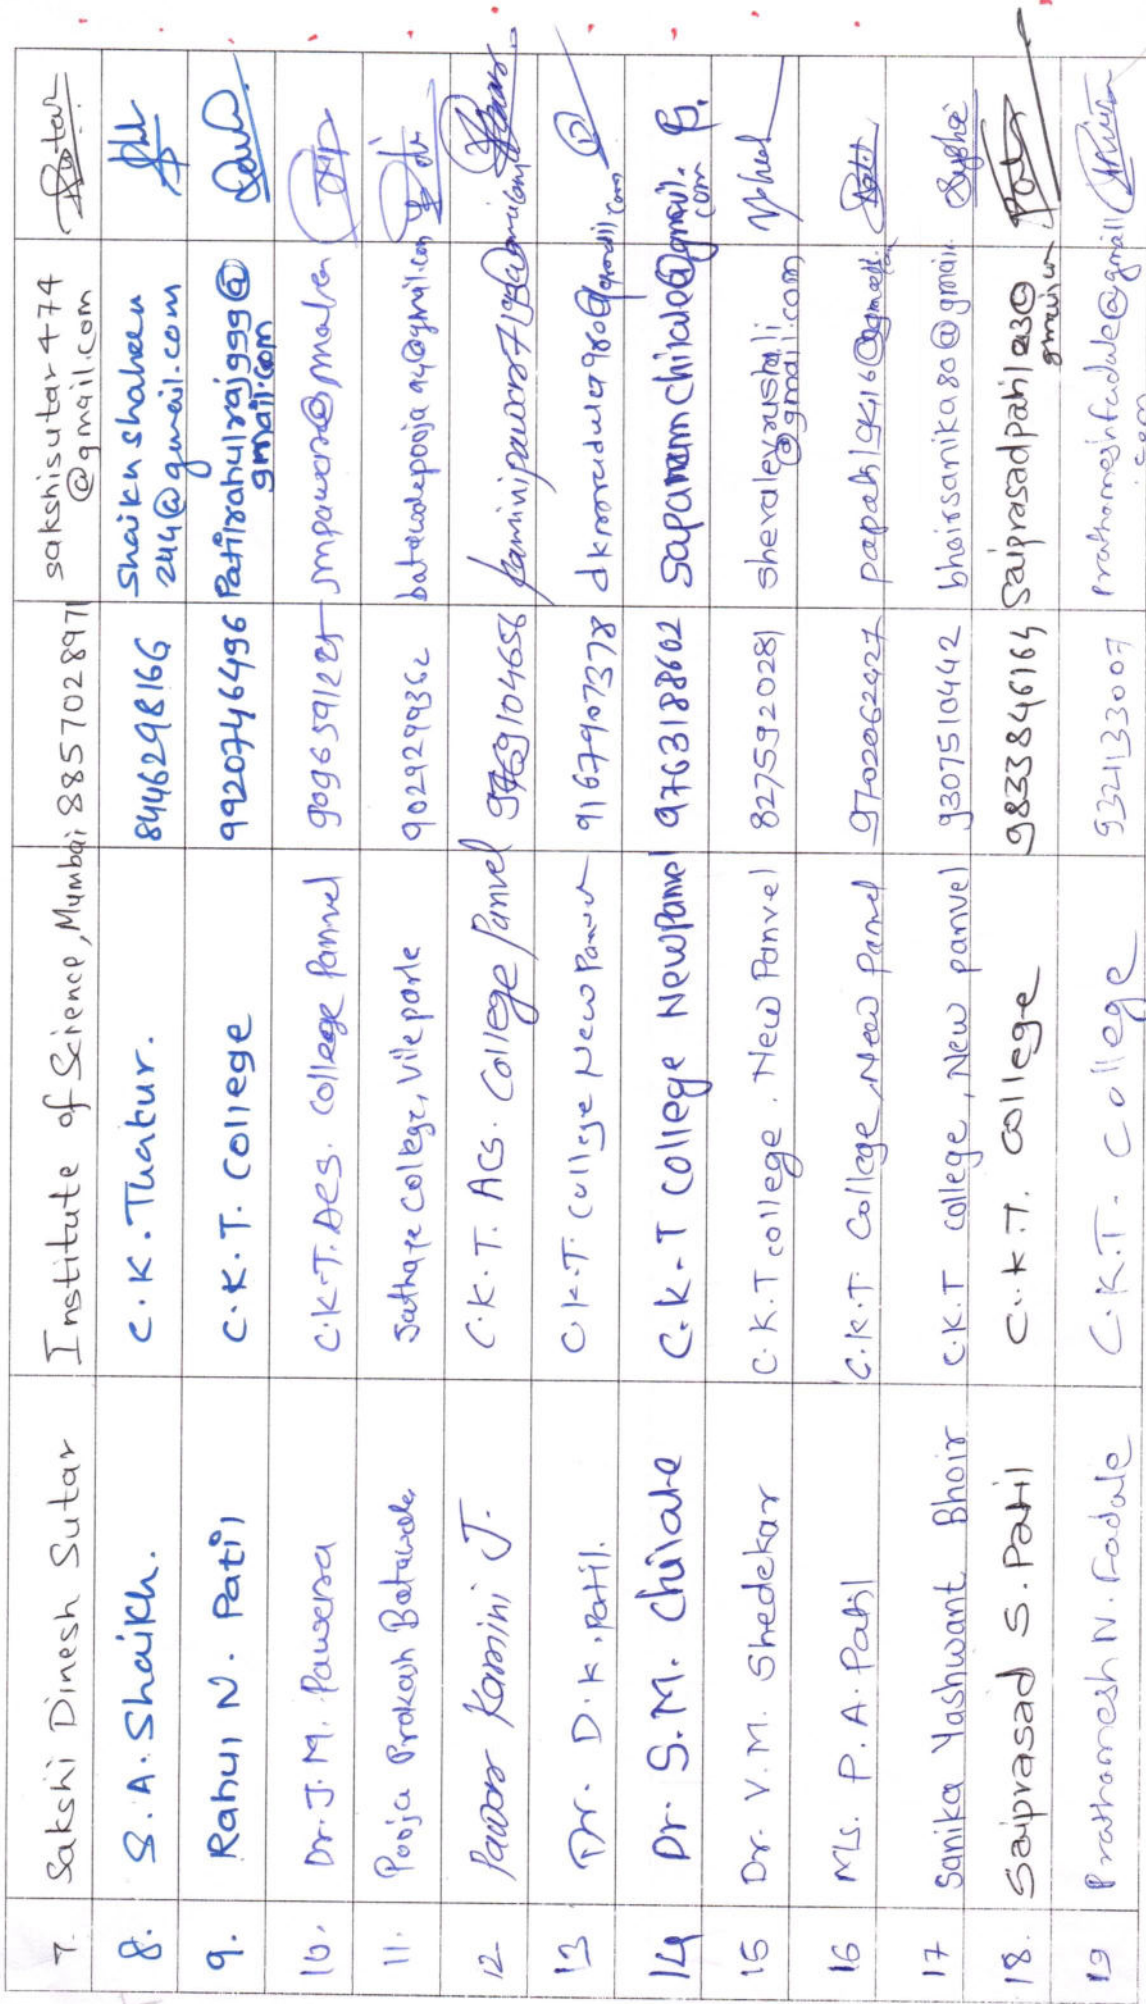 7. Sakshi Dinesh Sutar Institute of Science, Mumbai 8857028971 sakshisutar474
@gmail.com Sutar
8. S. A. Shaikh. C. K. Thakur. 8446298166 Shaikh shaheen
244@gmail.com
9. Rahul N. Patil C.K.T. College 9920746496 Patilrahulraj999@
gmail.com
10. Dr. J. M. Pawara C.K.T. ACS. College Panvel
11. Pooja Prakash Batawale Sathaye College, Vile parle batawalepooja94@gmail.com
12 Pawar Kamini J. C.K.T. ACS. College Panvel
13 Dr. D. K. Patil. C.K.T. College New Panvel 9167907378
14 Dr. S. M. Chirate C.K-T College New Panvel 9763188602
15 Dr. V. M. Shedekar C.K.T college, New Panvel 8275920281 shevalevrushali
@gmail.com
16 Ms. P. A. Patil C.K.T. College, New Panvel 9702062427
17 Sanika Yashwant Bhoir C.K.T college, New panvel 9307510442 bhoirsanika80@gmail.
18. Saiprasad S. Patil C.K.T. College 9833846164
19 Prathamesh N. Fadale C.K.T. College 9321133007 prathameshfadale@gmail
.com